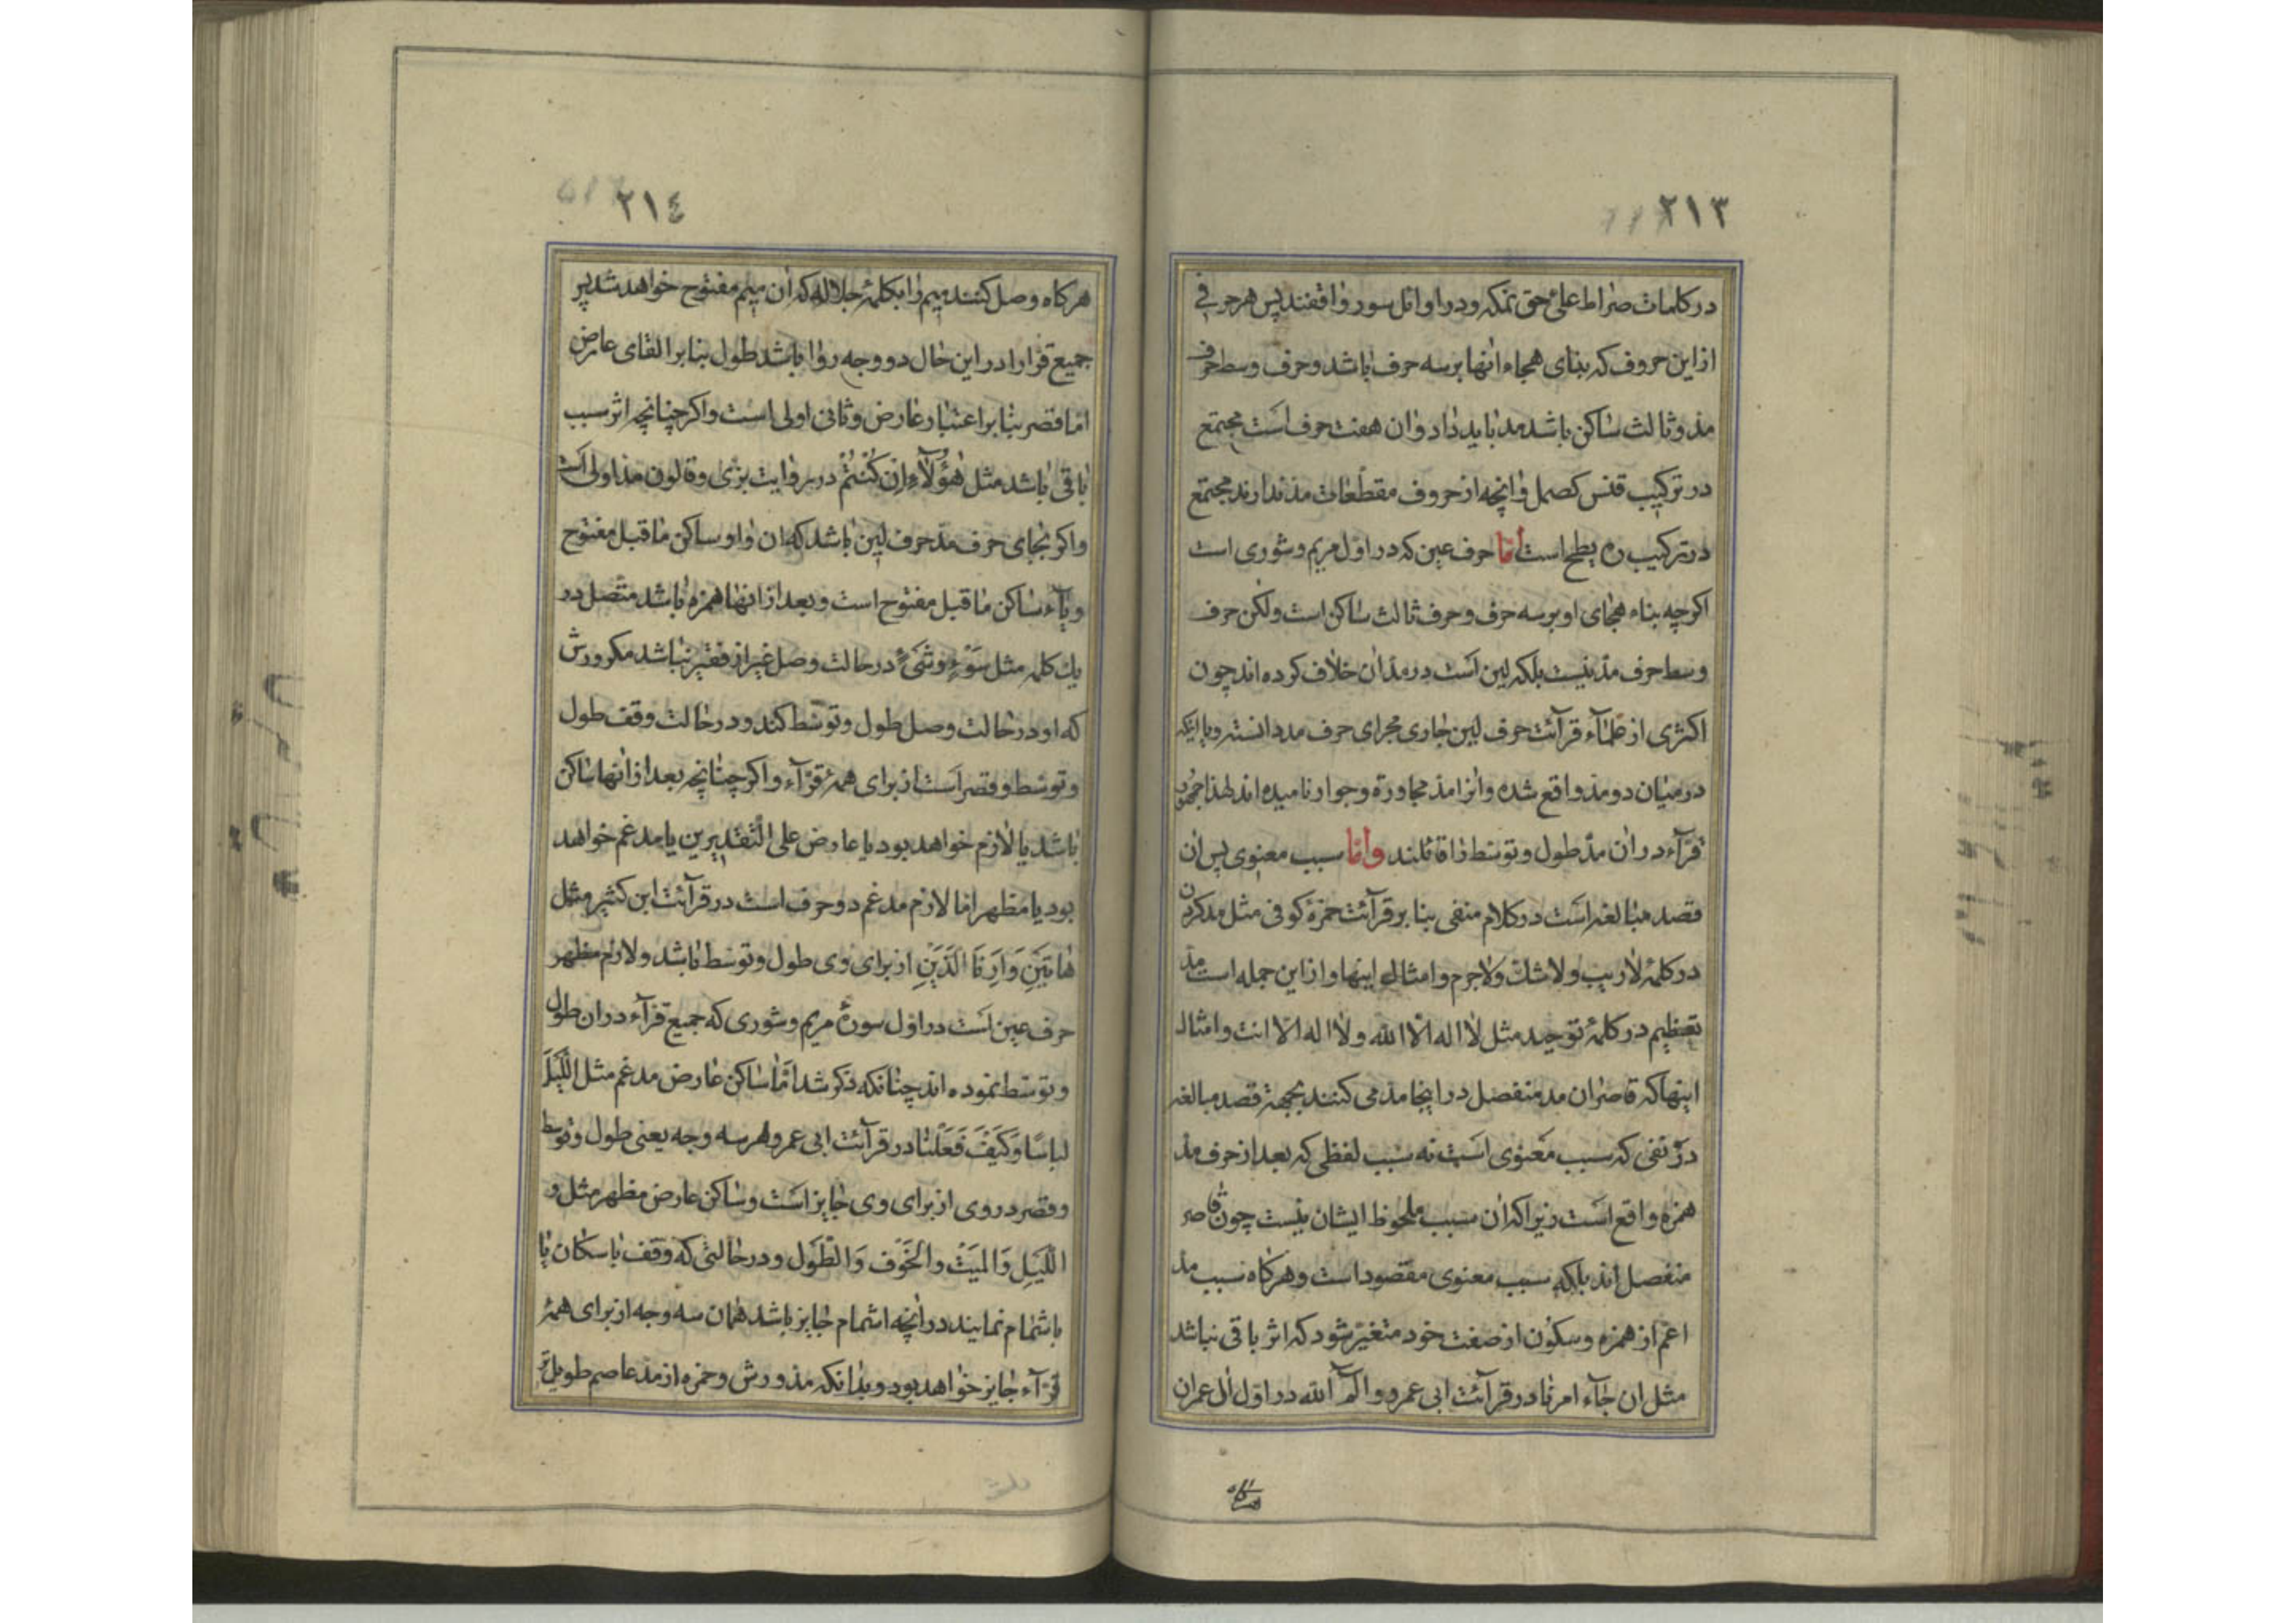 ٢١٣
در کلمات صراط علیّ حق نمسکه و در اوائل سور واقفند پس هر حرفی
از این حروف که بنای هجاء انها بر سه حرف باشد و حرف وسط حرف
مدّ و ثالث ساکن باشد مد باید داد و ان هفت حرف است مجتمع
در ترکیب قنس کصمل و انچه از حروف مقطعات مدّ ندارند مجتمع
در ترکیب ره یطح است امّا حرف عین که در اوّل مریم و شوری است
اکرچه بناء هجای او بر سه حرف و حرف ثالث ساکن است ولکن حرف
وسط حرف مدّ نیست بلکه لین است در مدّ ان خلاف کرده اند چون
اکثری از علمآء قرآئت حرف لین جاری مجرای حرف مد دانسته و با اینکه
در میان دو مدّ واقع شده و انرا مدّ مجاورة و جوار نامیده اند لهذا جمهور
قرّآء در ان مدّ طول و توسّط را قائلند وامّا سبب معنوی پس ان
قصد مبالغه است در کلام منفی بنا بر قرآئت حمزهٔ کوفی مثل مد کردن
در کلمهٔ لاریب و لاشک و لاجرم و امثال اینها و از این جمله است مدّ
تعظیم در کلمهٔ توحید مثل لا اله الّا الله و لا اله الّا انت و امثال
اینها که قاصران مد منفصل در اینجا مد می کنند بجهة قصد مبالغه
در نفی که سبب معنوی است نه سبب لفظی که بعد از حرف مدّ
همزه واقع است زیرا که ان سبب ملحوظ ایشان نیست چون قاصر
منفصل اند بلکه سبب معنوی مقصود است و هرکاه سبب مدّ
اعم از همزه و سکون از صفت خود متغیّر شود که اثر باقی نباشد
مثل ان جآء امرنا در قرآئت ابی عمرو و الٓمٓ الله در اوّل ال عمران
هرکاه
٢١٤
هرکاه وصل کنند میم را بکلمهٔ جلاله که ان میم مفتوح خواهد شد پس
جمیع قرّا را در این حال دو وجه روا باشد طول بنا بر الغای عارض
امّا قصر بنا بر اعتبار عارض و ثانی اولی است و اکر چنانچه اثر سبب
باقی باشد مثل هٰؤُلآءِ اِنْ کُنْتُمْ در روایت بزّی و قالون مدّ اولی است
و اکر بجای حرف مدّ حرف لین باشد که ان واو ساکن ماقبل مفتوح
و یآء ساکن ماقبل مفتوح است و بعد از انها همزه باشد متّصل در
یک کلمه مثل سَوْءٍ و شَیْءٍ در حالت وصل غیر از قصر نباشد مکر ورش
که او در حالت وصل طول و توسّط کند و در حالت وقف طول
و توسّط و قصر است از برای همهٔ قرّآء و اکر چنانچه بعد از انها ساکن
باشد یا لازم خواهد بود یا عارض علی التّقدیرین یا مدغم خواهد
بود یا مظهر امّا لازم مدغم دو حرف است در قرآئت ابن کثیر مثل
هٰاتَیْنِ وَ اَرِنَا الَّذَیْنِ از برای وی طول و توسّط باشد و لازم مظهر
حرف عین است در اوّل سورهٔ مریم و شوری که جمیع قرّآء در ان طول
و توسّط نموده اند چنانکه ذکر شد امّا ساکن عارض مدغم مثل اللَّیْلَ
لباسًا وَ کَیْفَ فَعَلْنا در قرآئت ابی عمرو هر سه وجه یعنی طول و توسّط
و قصر در وی از برای وی جایز است و ساکن عارض مظهر مثل و
اللَّیْلِ وَ المَیْت و الخَوْف وَ الطَّوْل و در حالتی که وقف باسکان یا
باشمام نمایند در انچه اشمام جایز باشد همان سه وجه از برای همهٔ
قرّآء جایز خواهد بود و بدانکه مدّ ورش و حمزه از مدّ عاصم طویل‌تر